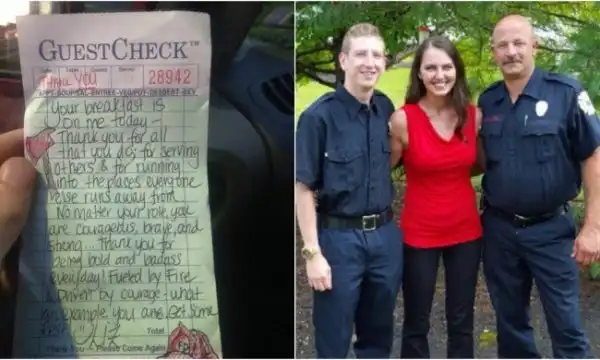 GUESTCHECK™
Thank You
28942
Your breakfast is
on me today -
Thank you for all
that you do; for serving
others & for running
into the places everyone
else runs away from.
No matter your role, you
are courageous, brave, and
strong... Thank you for
being bold and badass
everyday! Fueled by Fire
& Driven by courage - what
an example you are. Get some
Liz
Total
Thank You - Please Come Again